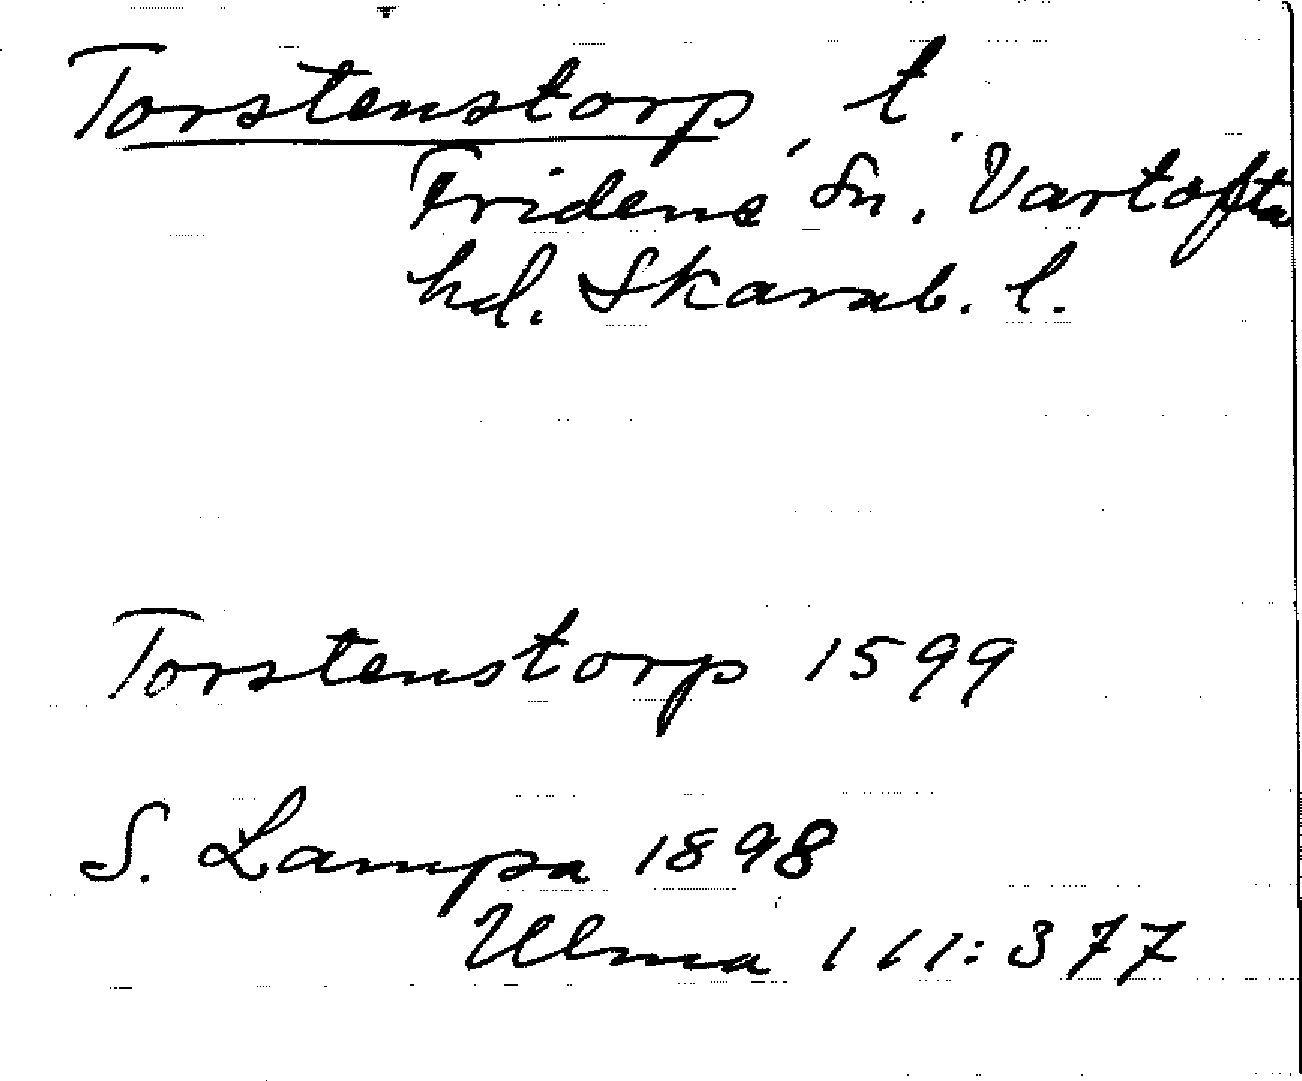 Torstenstorp, t.
Fridene Sn. Vartofta
hd. Skarab. l.
Torstenstorp 1599
S. Lampa 1898
Ulma 111:377